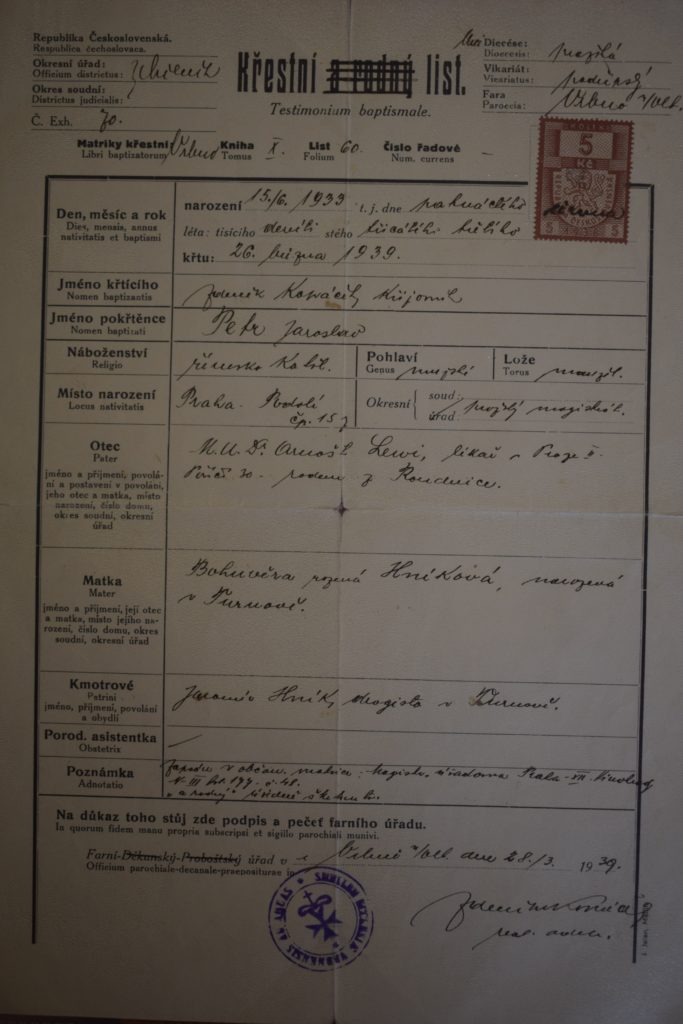 Republika Československá.
Respublica čechoslovaca.
Okresní úřad:
Officium districtus:
Okres soudní:
Districtus judicialis:
Č. Exh. 70.
Křestní a rodný list.
Testimonium baptismale.
Diecése: pražská
Dioecesis:
Vikariát:
Vicariatus:
Fara Vrbno n/Vlt.
Paroecia:
Matriky křestní Vrbno Kniha X. List 60. Číslo řadové —
Libri baptizatorum Tomus Folium Num. currens
KOLEK
5
Kč
Den, měsíc a rok
Dies, mensis, annus
nativitatis et baptismi
narození 15./6. 1933 t. j. dne patnáctého
léta: tisícího devíti stého třicátého třetího
křtu: 26. března 1939.
Jméno křtícího
Nomen baptizantis
Zdeněk
Jméno pokřtěnce
Nomen baptizati
Petr Jaroslav
Náboženství
Religio
římsko kat.
Pohlaví
Genus mužské
Lože
Torus manžel.
Místo narození
Locus nativitatis
Praha - Podolí
čp. 157
Okresní soud:
úřad: pražský magistrát.
Otec
Pater
jméno a příjmení, povolání a postavení v povolání,
jeho otec a matka, místo
narození, číslo domu,
okres soudní, okresní
úřad
M.U.Dr. Arnošt Lewi, lékař v Praze II.
Poříč 30 - rodem z Roudnice.
Matka
Mater
jméno a příjmení, její otec
a matka, místo jejího narození, číslo domu, okres
soudní, okresní úřad
Bohuvěra rozená Hníková, narozená
v Turnově.
Kmotrové
Patrini
jméno, příjmení, povolání
a obydlí
Jaromír Hník, drogista v Turnově.
Porod. asistentka
Obstetrix
—
Poznámka
Adnotatio
v občan. matrice: Magistr. úřadovna Praha - VII.
"a rodný" úředně škrtnuto.
Na důkaz toho stůj zde podpis a pečeť farního úřadu.
In quorum fidem manu propria subscripsi et sigillo parochiali munivi.
Farní-Děkanský-Proboštský úřad v Vrbně n/Vlt. dne 28./3. 1939.
Officium parochiale-decanale-praepositurae in